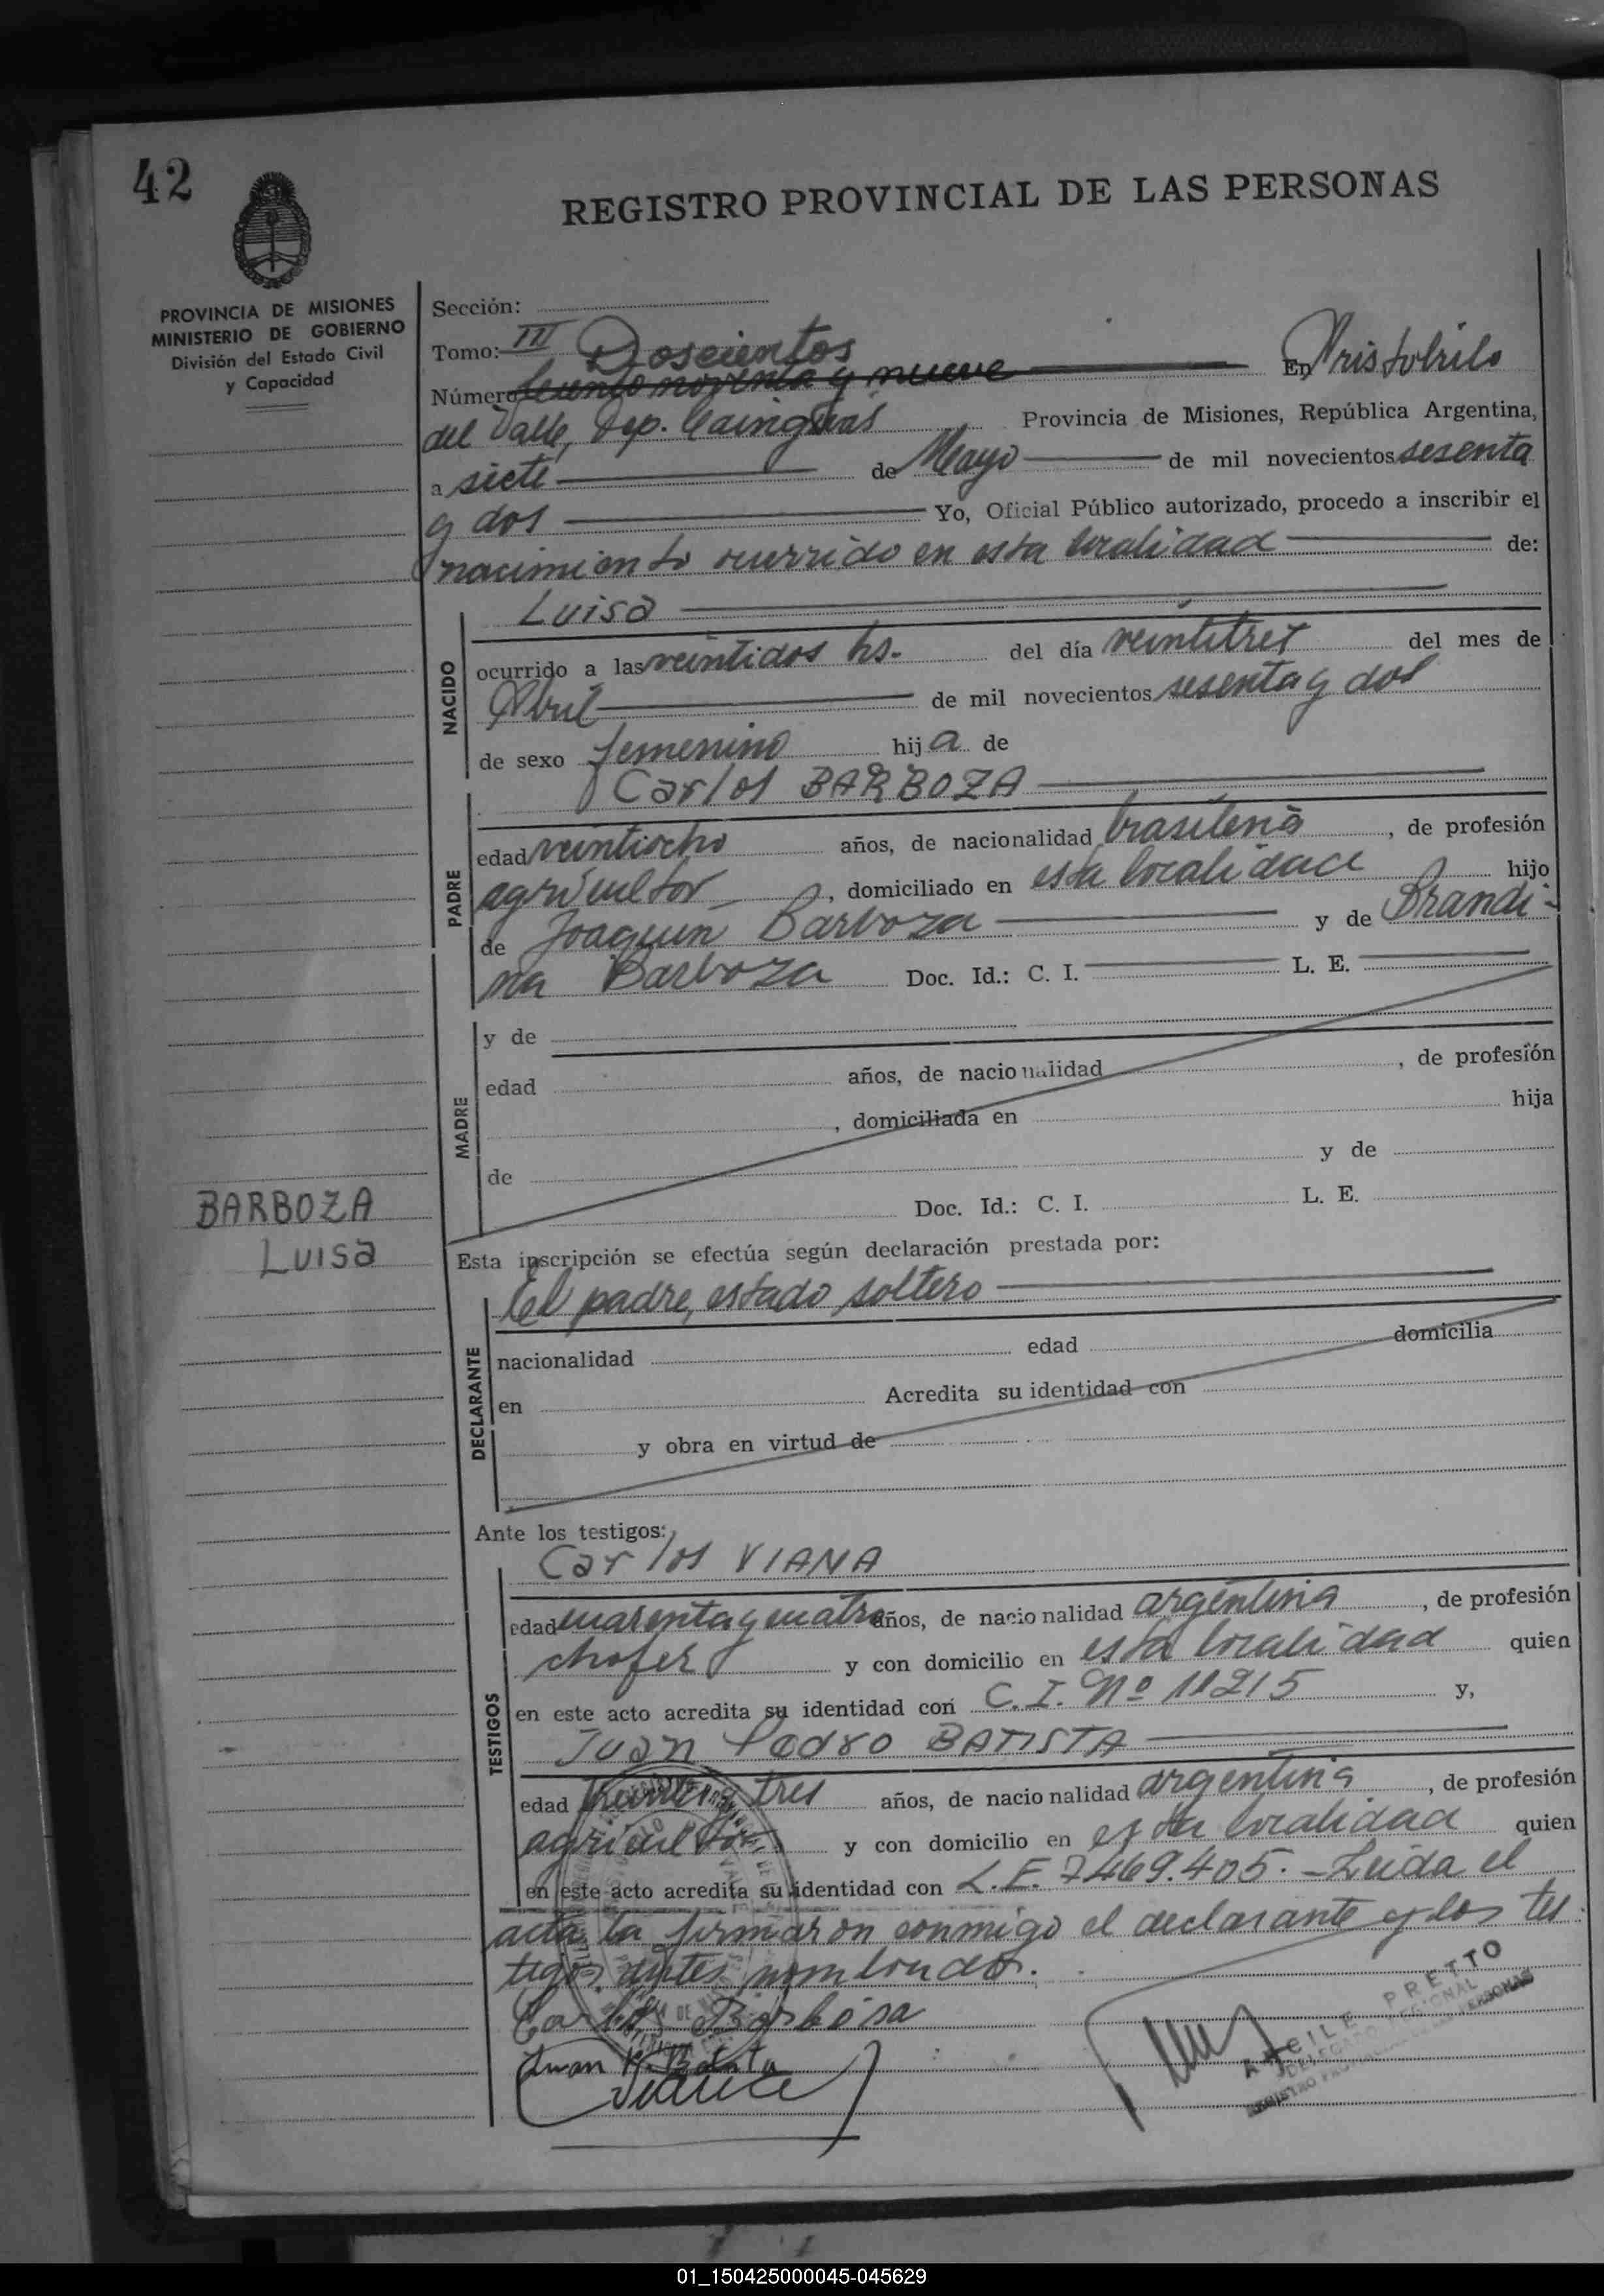 42
REGISTRO PROVINCIAL DE LAS PERSONAS
PROVINCIA DE MISIONES
MINISTERIO DE GOBIERNO
División del Estado Civil
y Capacidad
Sección:
Tomo: III Doscientos
Número ciento noventa y nueve En Aristobulo
del Valle, Dep. Cainguás Provincia de Misiones, República Argentina,
a siete de Mayo de mil novecientos sesenta
y dos Yo, Oficial Público autorizado, procedo a inscribir el
nacimiento ocurrido en esta localidad de:
Luisa
NACIDO
ocurrido a las veintidos hs. del día veintitres del mes de
Abril de mil novecientos sesenta y dos
de sexo femenino hija de
Carlos BARBOZA
PADRE
edad veintiocho años, de nacionalidad brasileña, de profesión
agricultor, domiciliado en esta localidad hijo
de Joaquin Barboza y de Brandi-
na Barboza Doc. Id.: C. I. L. E.
MADRE
y de
edad años, de nacionalidad, de profesión
, domiciliada en hija
de y de
Doc. Id.: C. I. L. E.
BARBOZA
Luisa
Esta inscripción se efectúa según declaración prestada por:
El padre, estado soltero
DECLARANTE
nacionalidad edad domicilia
en Acredita su identidad con
y obra en virtud de
Ante los testigos:
Carlos VIANA
TESTIGOS
edad cuarenta y cuatro años, de nacionalidad argentina, de profesión
chofer y con domicilio en esta localidad quien
en este acto acredita su identidad con C.I. Nº 11215 y,
Juan Pedro BATISTA
edad treinta y tres años, de nacionalidad argentina, de profesión
agricultor y con domicilio en esta localidad quien
en este acto acredita su identidad con L.E. 7469.405.- Leida el
acta la firmaron conmigo el declarante y los tes
tigos antes nombrados.
Carlos Barbosa
Juan P. Batista
PRETTO
01_150425000045-045629